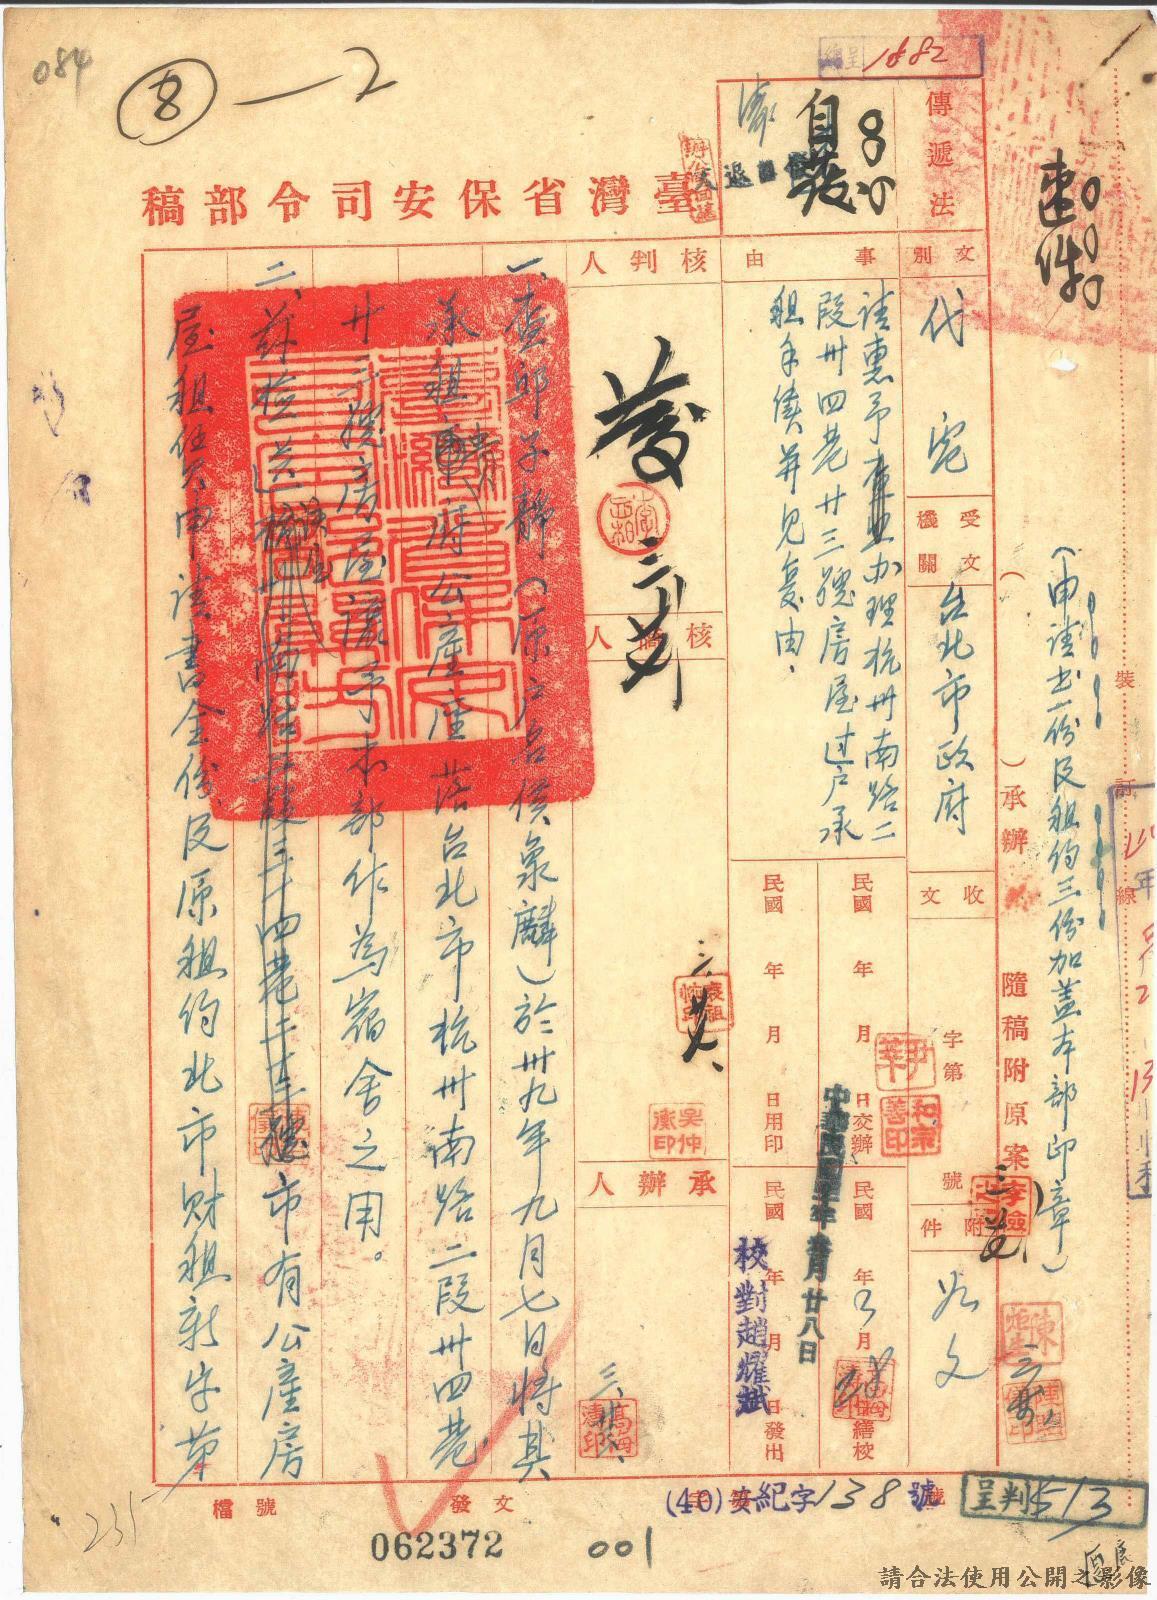 084
⑧—2
呈 1882
速件
裝
訂
線
(申請書一份及租約三份加蓋本部印章)
( )承辦
隨稿附原案
臺灣省保安司令部稿
傳遞法
自送
退回
文別
代電
受文機關
台北市政府
收文
字第
號
附件
如文
事由
請惠予辦理杭州南路二
段卅四巷廿三號房屋过户承
租手續并見复由、
民國 年 月 日交辦
民國 年 月 日繕校
民國 年 月 日用印
民國 年 月 日發出
校對趙耀斌
核判人
發
核稿人
承辦人
一、查邱子靜(原户名侯象麟)於卅九年九月七日將其
承租貴府公產座落台北市杭州南路二段卅四巷
廿三號房屋讓予本部作為宿舍之用。
二、茲檢送杭州南路二段三十四巷二十三號市有公產房
該屋
屋租賃申請書全份及原租約北市財租新字第
檔號
發文
(40)安紀字138號
呈判513
235
062372
001
請合法使用公開之影像